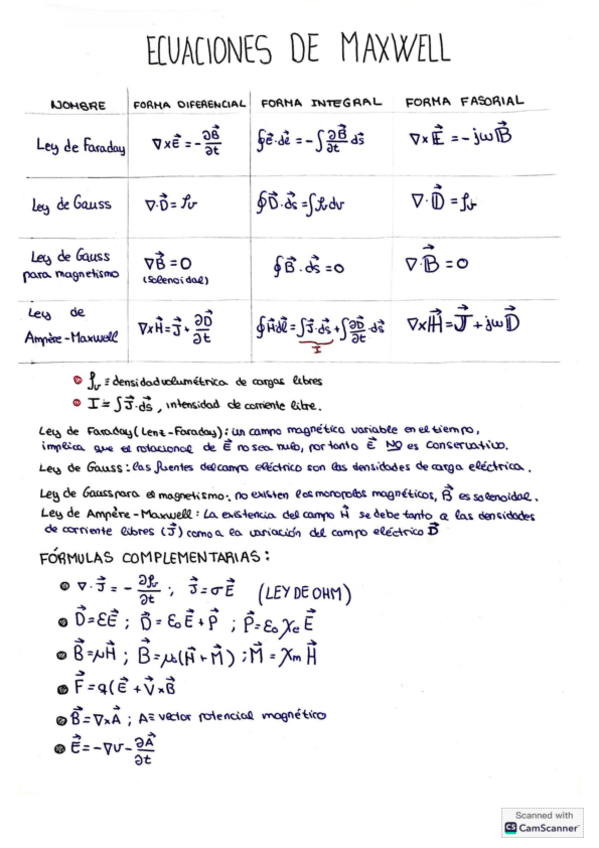 ECUACIONES DE MAXWELL
NOMBRE FORMA DIFERENCIAL FORMA INTEGRAL FORMA FASORIAL
Ley de Faraday ∇×E⃗ = -∂B⃗/∂t ∮E⃗·dℓ⃗ = -∫∂B⃗/∂t ds⃗ ∇×𝔼⃗ = -jω𝔹⃗
Ley de Gauss ∇·D⃗ = ρv ∮D⃗·ds⃗ = ∫ρv dv ∇·𝔻⃗ = ρv
Ley de Gauss
para magnetismo ∇B⃗ = 0 ∮B⃗·ds⃗ = 0 ∇·𝔹⃗ = 0
(solenoidal)
Ley de
Ampère-Maxwell ∇×H⃗ = J⃗ + ∂D⃗/∂t ∮H⃗dℓ⃗ = ∫J⃗·ds⃗ + ∫∂D⃗/∂t·ds⃗ ∇×ℍ⃗ = J⃗ + jω𝔻⃗
I
ρv ≡ densidad volumétrica de cargas libres
I ≡ ∫J⃗·ds⃗, intensidad de corriente libre.
Ley de Faraday (Lenz-Faraday): un campo magnético variable en el tiempo,
implica que el rotacional de E⃗ no sea nulo, por tanto E⃗ NO es conservativo.
Ley de Gauss: las fuentes del campo eléctrico son las densidades de carga eléctrica.
Ley de Gauss para el magnetismo: no existen los monopolos magnéticos, B⃗ es solenoidal.
Ley de Ampère-Maxwell: La existencia del campo H⃗ se debe tanto a las densidades
de corriente libres (J⃗) como a la variación del campo eléctrico D⃗
FÓRMULAS COMPLEMENTARIAS:
∇·J⃗ = -∂ρv/∂t ; J⃗ = σE⃗ (LEY DE OHM)
D⃗ = εE⃗ ; D⃗ = ε₀E⃗ + P⃗ ; P⃗ = ε₀χeE⃗
B⃗ = μH⃗ ; B⃗ = μ₀(H⃗ + M⃗) ; M⃗ = χmH⃗
F⃗ = q(E⃗ + V⃗×B⃗
B⃗ = ∇×A⃗ ; A ≡ vector potencial magnético
E⃗ = -∇v - ∂A⃗/∂t
Scanned with
CS CamScanner